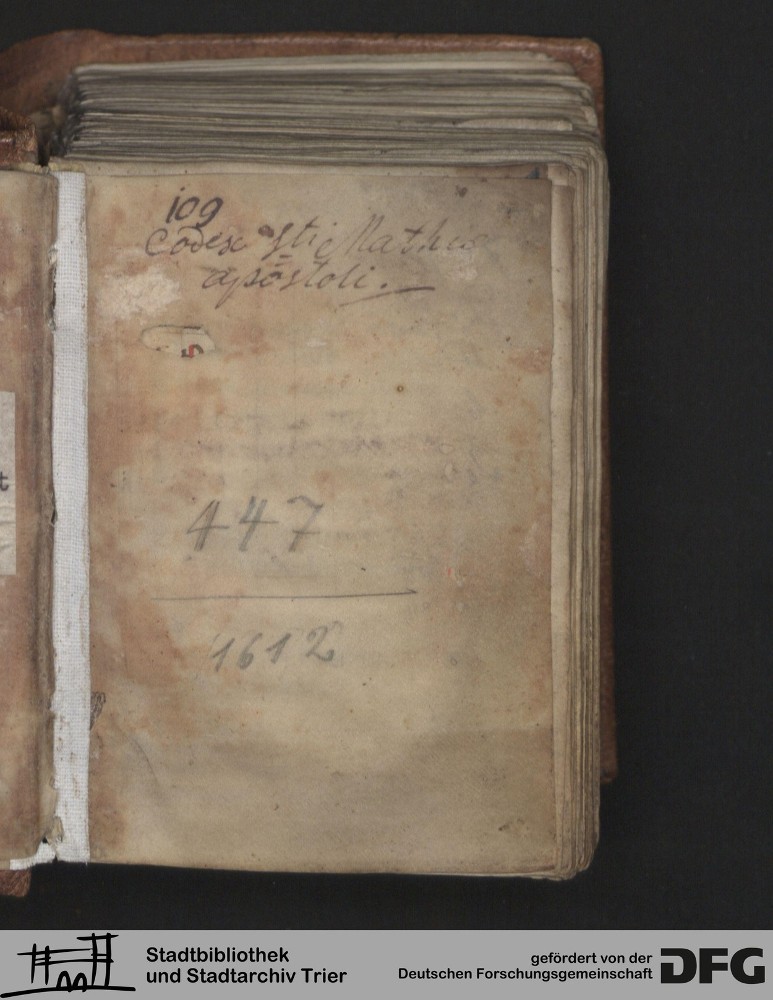 109
Codex Sti Mathiæ
apostoli.
447
1612
t
Stadtbibliothek
und Stadtarchiv Trier
gefördert von der
Deutschen Forschungsgemeinschaft
DFG